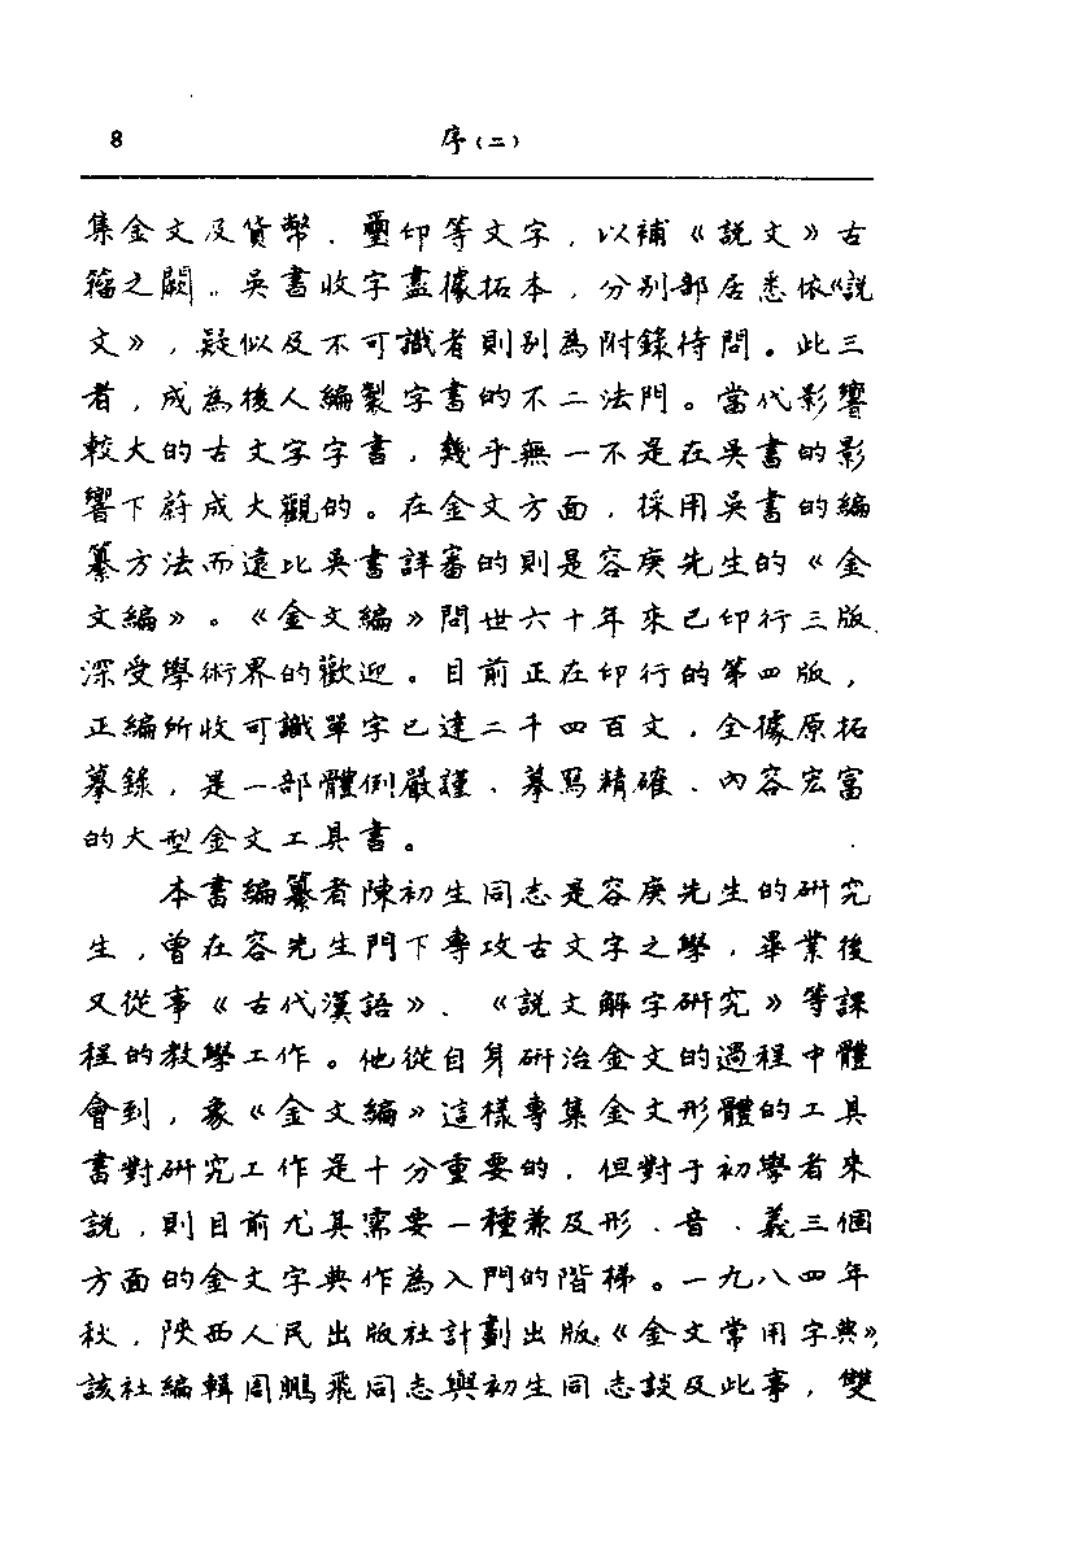 8 序（二）
集金文及貨幣、璽印等文字，以補《說文》古
籀之闕。吳書收字盡據拓本，分别部居悉依《說
文》，疑似及不可識者則别為附錄待問。此三
者，成為後人編製字書的不二法門。當代影響
較大的古文字字書，幾乎無一不是在吳書的影
響下蔚成大觀的。在金文方面，採用吳書的編
纂方法而遠比吳書詳審的則是容庚先生的《金
文編》。《金文編》問世六十年來已印行三版，
深受學術界的歡迎。目前正在印行的第四版，
正編所收可識單字已達二千四百文，全據原拓
摹錄，是一部體例嚴謹、摹寫精確、內容宏富
的大型金文工具書。
本書編纂者陳初生同志是容庚先生的研究
生，曾在容先生門下專攻古文字之學，畢業後
又從事《古代漢語》、《說文解字研究》等課
程的教學工作。他從自身研治金文的過程中體
會到，象《金文編》這樣專集金文形體的工具
書對研究工作是十分重要的，但對于初學者來
說，則目前尤其需要一種兼及形、音、義三個
方面的金文字典作為入門的階梯。一九八四年
秋，陝西人民出版社計劃出版《金文常用字典》，
該社編輯周鵬飛同志與初生同志談及此事，雙